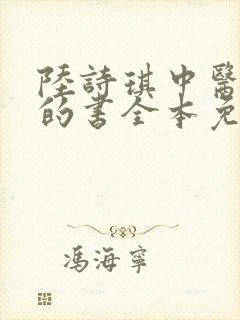 陸詩琪中醫
的書全本免
馮海寧